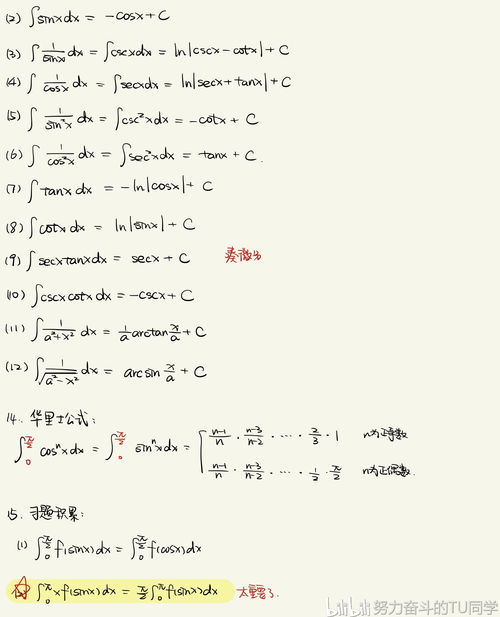 (2) ∫sinxdx = -cosx + C
(3) ∫1/sinx dx = ∫cscxdx = ln|cscx-cotx| + C
(4) ∫1/cosx dx = ∫secxdx = ln|secx+tanx| + C
(5) ∫1/sin²x dx = ∫csc²xdx = -cotx + C
(6) ∫1/cos²x dx = ∫sec²xdx = tanx + C.
(7) ∫tanxdx = -ln|cosx| + C
(8) ∫cotxdx = ln|sinx| + C
(9) ∫secxtanxdx = secx + C 凑微分
(10) ∫cscxcotxdx = -cscx + C
(11) ∫1/(a²+x²) dx = 1/a arctan x/a + C
(12) ∫1/√(a²-x²) dx = arcsin x/a + C
14. 华里士公式:
∫₀^(π/2) cosⁿxdx = ∫₀^(π/2) sinⁿxdx = { (n-1)/n · (n-3)/(n-2) · … · 2/3 · 1 n为正奇数
(n-1)/n · (n-3)/(n-2) · … · 1/2 · π/2 n为正偶数.
15. 习题积累:
(1) ∫₀^(π/2) f(sinx)dx = ∫₀^(π/2) f(cosx)dx
∫₀^π xf(sinx)dx = π/2 ∫₀^π f(sinx)dx 太重要了.
bilibili 努力奋斗的TU同学